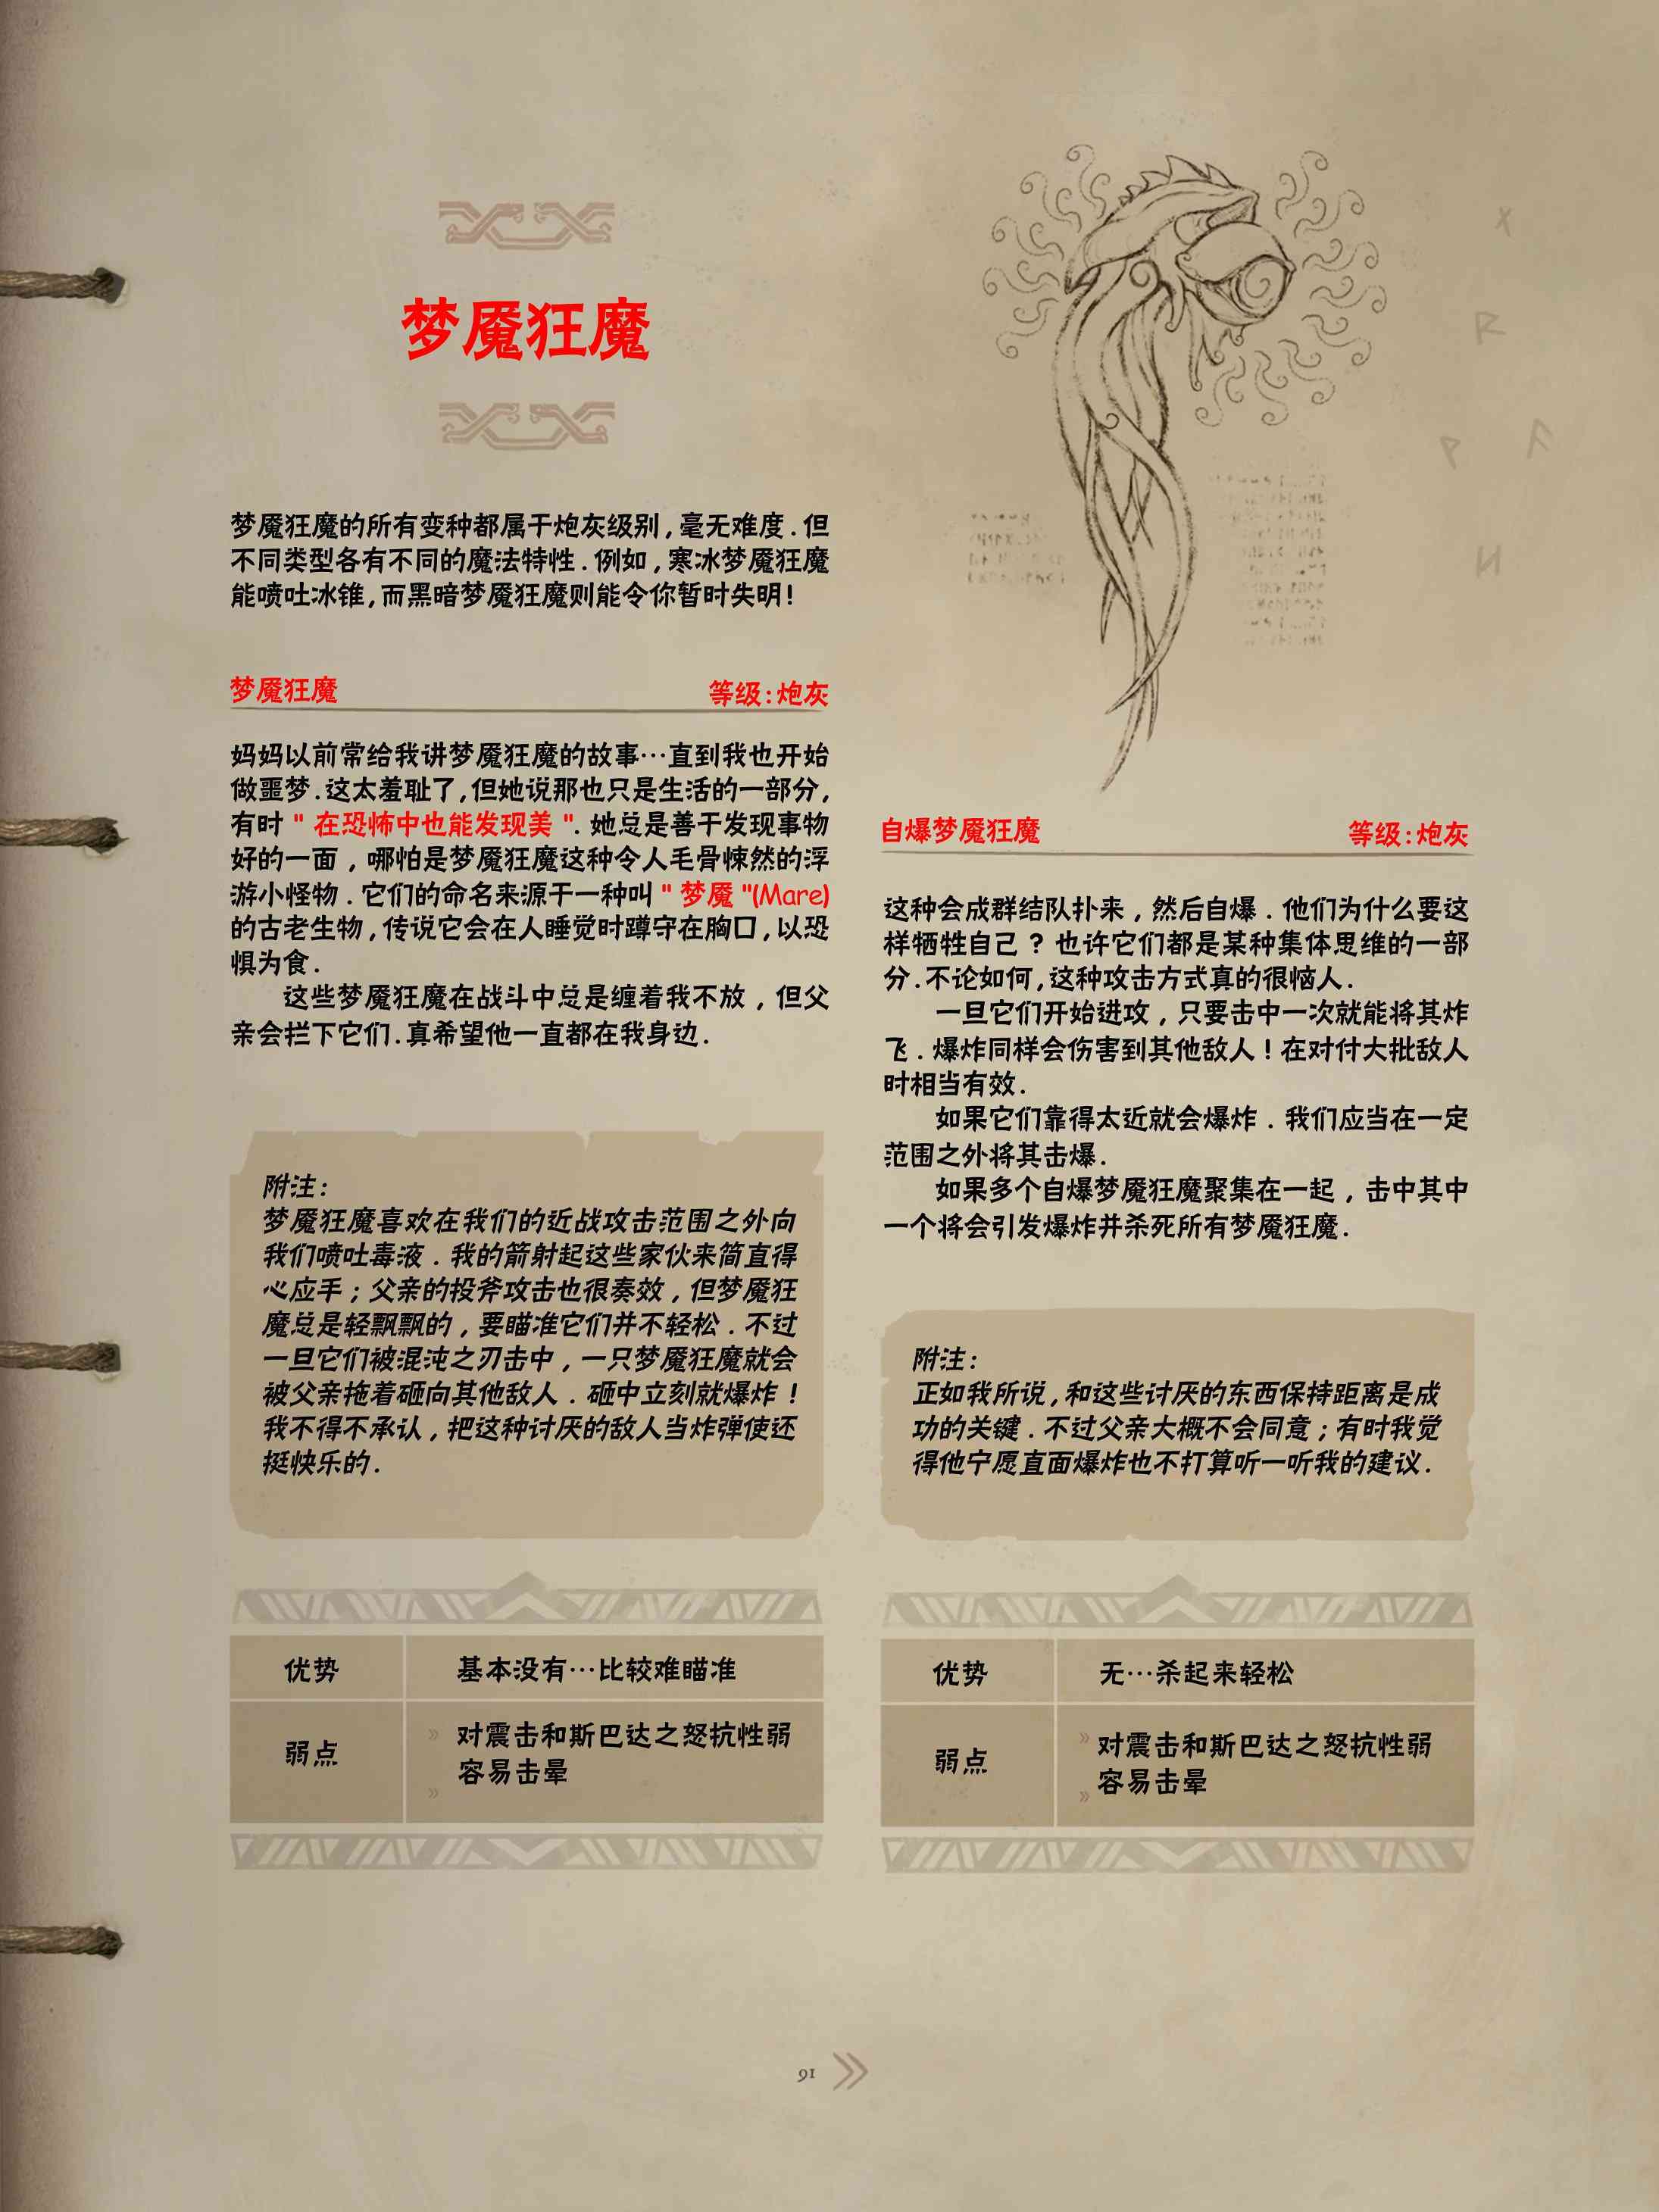 梦魇狂魔
梦魇狂魔的所有变种都属于炮灰级别,毫无难度.但
不同类型各有不同的魔法特性.例如,寒冰梦魇狂魔
能喷吐冰锥,而黑暗梦魇狂魔则能令你暂时失明!
梦魇狂魔 等级:炮灰
妈妈以前常给我讲梦魇狂魔的故事…直到我也开始
做噩梦.这太羞耻了,但她说那也只是生活的一部分,
有时"在恐怖中也能发现美".她总是善于发现事物
好的一面,哪怕是梦魇狂魔这种令人毛骨悚然的浮
游小怪物.它们的命名来源于一种叫"梦魇"(Mare)
的古老生物,传说它会在人睡觉时蹲守在胸口,以恐
惧为食.
这些梦魇狂魔在战斗中总是缠着我不放,但父
亲会拦下它们.真希望他一直都在我身边.
附注:
梦魇狂魔喜欢在我们的近战攻击范围之外向
我们喷吐毒液.我的箭射起这些家伙来简直得
心应手;父亲的投斧攻击也很奏效,但梦魇狂
魔总是轻飘飘的,要瞄准它们并不轻松.不过
一旦它们被混沌之刃击中,一只梦魇狂魔就会
被父亲拖着砸向其他敌人.砸中立刻就爆炸!
我不得不承认,把这种讨厌的敌人当炸弹使还
挺快乐的.
优势 基本没有…比较难瞄准
弱点 » 对震击和斯巴达之怒抗性弱
» 容易击晕
自爆梦魇狂魔 等级:炮灰
这种会成群结队扑来,然后自爆.他们为什么要这
样牺牲自己?也许它们都是某种集体思维的一部
分.不论如何,这种攻击方式真的很恼人.
一旦它们开始进攻,只要击中一次就能将其炸
飞.爆炸同样会伤害到其他敌人!在对付大批敌人
时相当有效.
如果它们靠得太近就会爆炸.我们应当在一定
范围之外将其击爆.
如果多个自爆梦魇狂魔聚集在一起,击中其中
一个将会引发爆炸并杀死所有梦魇狂魔.
附注:
正如我所说,和这些讨厌的东西保持距离是成
功的关键.不过父亲大概不会同意;有时我觉
得他宁愿直面爆炸也不打算听一听我的建议.
优势 无…杀起来轻松
弱点 » 对震击和斯巴达之怒抗性弱
» 容易击晕
91